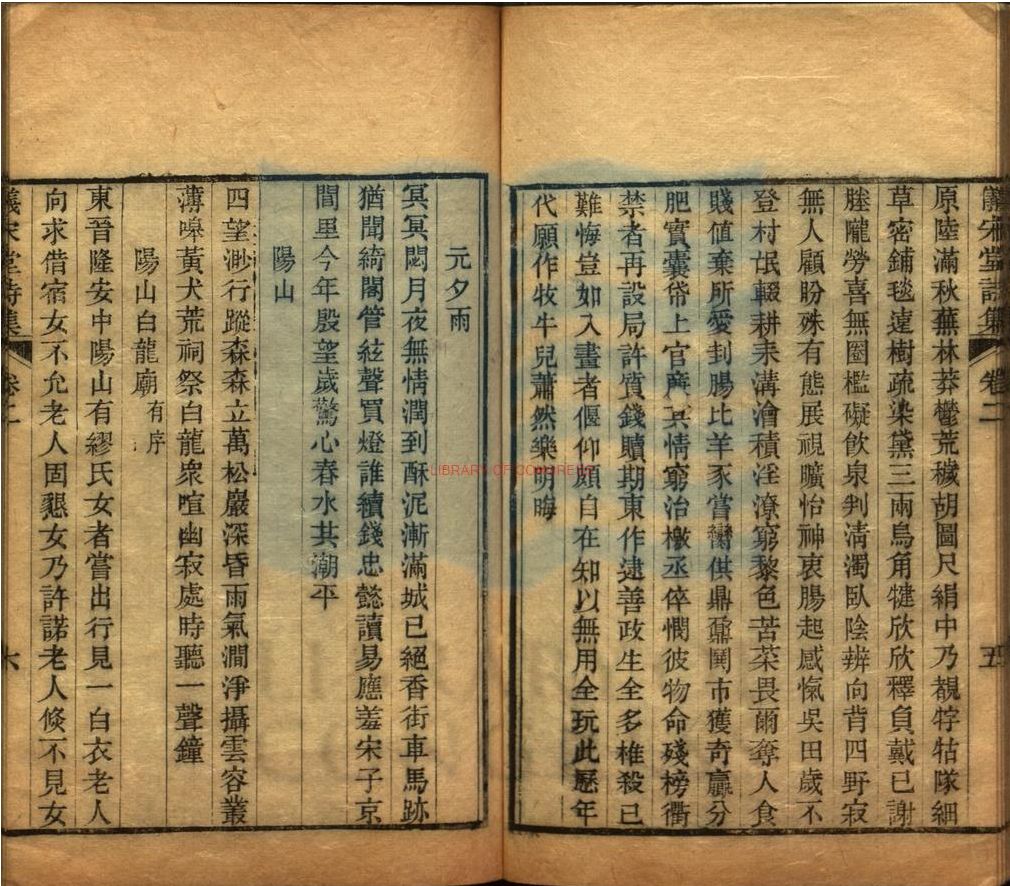 宋堂詩集 卷二 五
原陸滿秋蕪林莽鬱荒穢胡圖尺絹中乃覩牸牯隊細
草密鋪毯遠樹疏染黛三兩烏角犍欣欣釋負戴已謝
塍隴勞喜無圈檻礙飲泉判清濁臥陰辨向背四野寂
無人顧盼殊有態展視曠怡神衷腸起感愾吳田歲不
登村氓輟耕耒溝澮積淫潦窮黎色苦菜畏爾奪人食
賤值棄所愛刲腸比羊豕嘗臠供鼎鼐鬨市獲奇贏分
肥實囊帒上官廉其情窮治檄丞倅憫彼物命殘榜衢
禁者再設局許質錢贖期東作逮善政生全多椎殺已
難悔豈如入畫者偃仰頗自在知以無用全玩此歷年
代願作牧牛兒蕭然樂明晦
元夕雨
冥冥閟月夜無情潤到酥泥漸滿城已絕香街車馬跡
猶聞綺閣管絃聲買燈誰續錢忠懿讀易應羞宋子京
閭里今年殷望歲驚心春水共潮平
陽山
四望渺行蹤森森立萬松巖深昏雨氣澗淨攝雲容叢
薄嘷黃犬荒祠祭白龍衆喧幽寂處時聽一聲鐘
陽山白龍廟有序
東晉隆安中陽山有繆氏女者嘗出行見一白衣老人
向求借宿女不允老人固懇女乃許諾老人倏不見女
宋堂詩集 卷二 六
LIBRARY OF CONGRESS